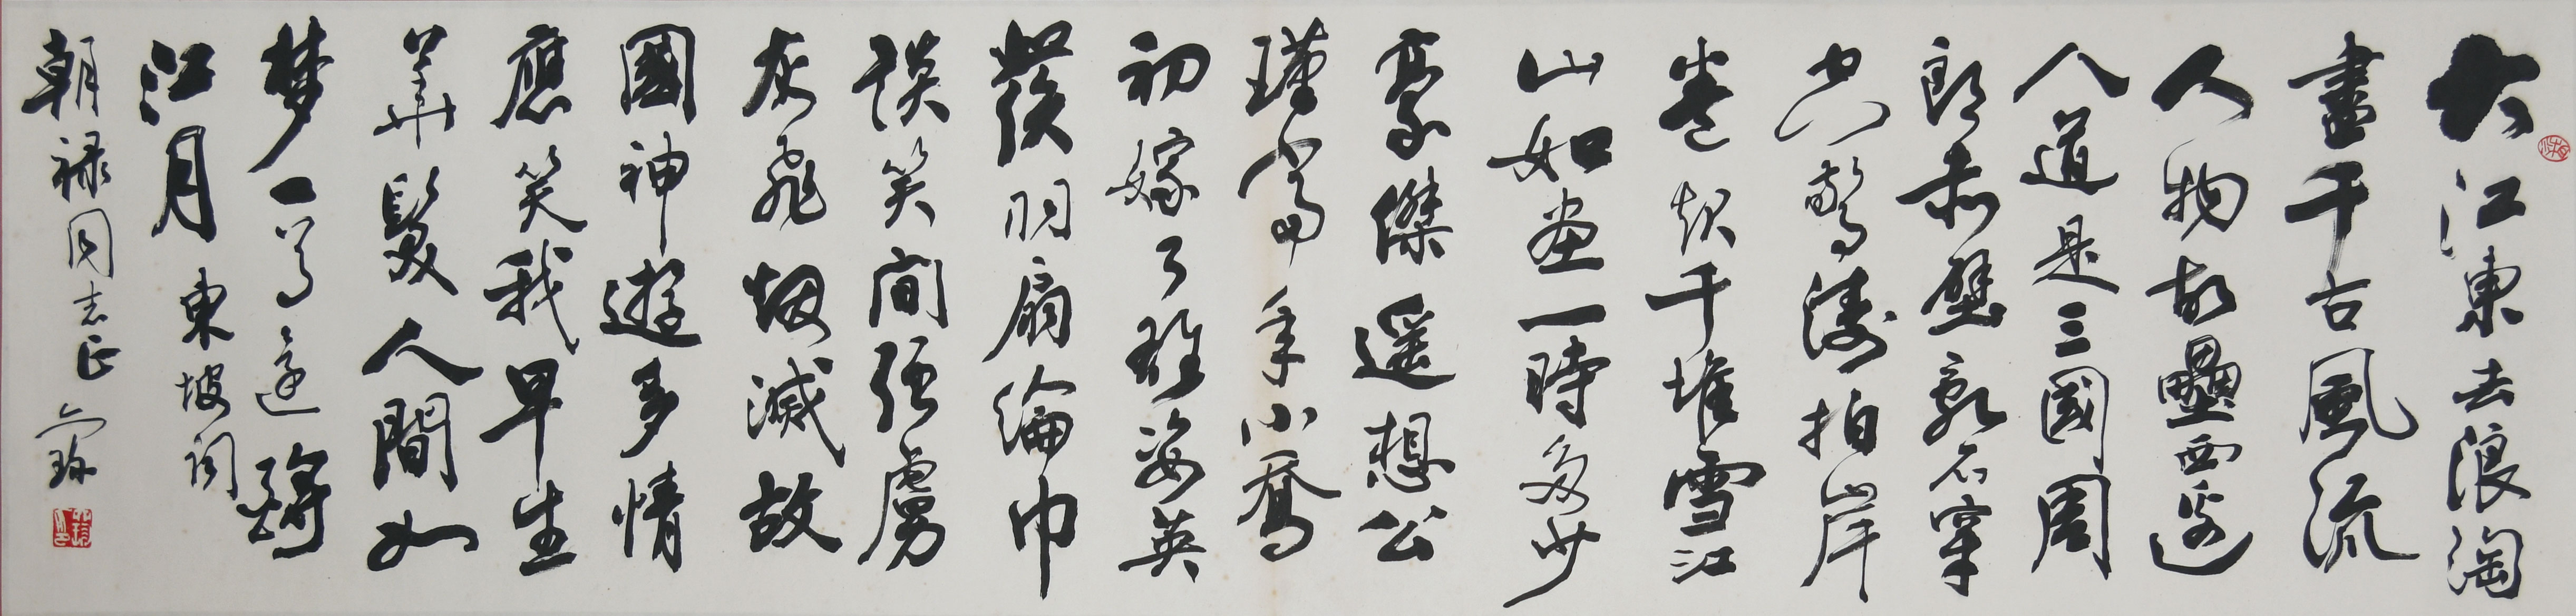 大江東去浪淘
盡千古風流
人物故壘西邊
人道是三國周
郎赤壁亂石穿
空驚濤拍岸
卷起千堆雪江
山如畫一時多少
豪傑遥想公
瑾當年小喬
初嫁了雄姿英
發羽扇綸巾
談笑間强虜
灰飛烟滅故
國神遊多情
應笑我早生
華髮人間如
梦一尊還酹
江月 東坡詞
朝禄同志正